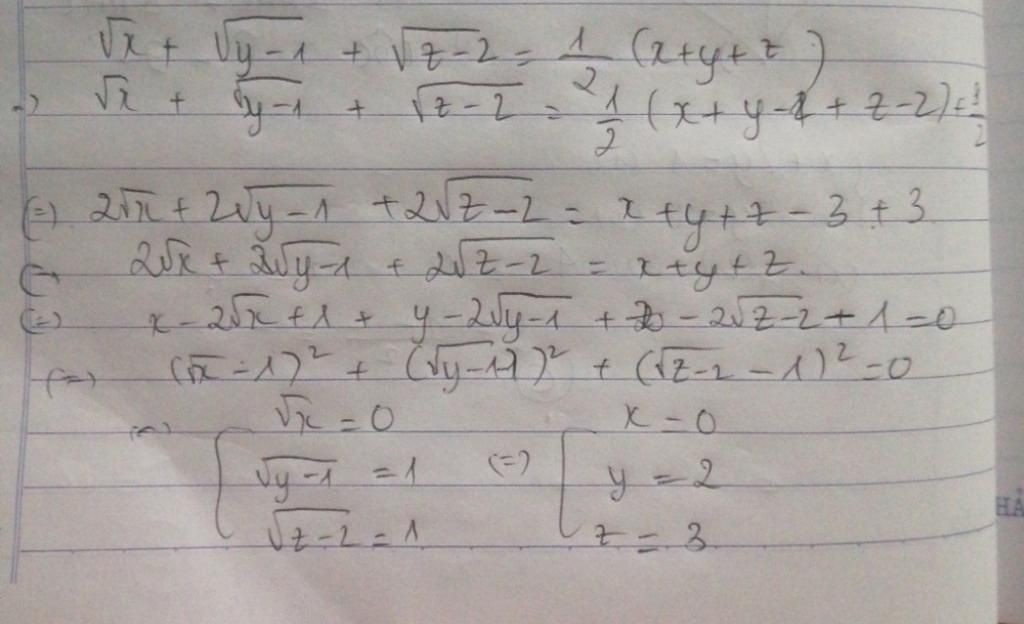 √x + √(y-1) + √(z-2) = 1/2 (x+y+z)
=) √x + √(y-1) + √(z-2) = 1/2 (x+y-1+z-2)+3/2
(=) 2√x + 2√(y-1) + 2√(z-2) = x+y+z-3+3
(=) 2√x + 2√(y-1) + 2√(z-2) = x+y+z.
(=) x-2√x+1 + y-2√(y-1) + z-2√(z-2)+1=0
(=) (√x-1)² + (√(y-1)-1)² + (√(z-2)-1)²=0
(=) √x = 0 x=0
√(y-1) = 1 (=) y = 2
√(z-2) = 1 z = 3
HẢ